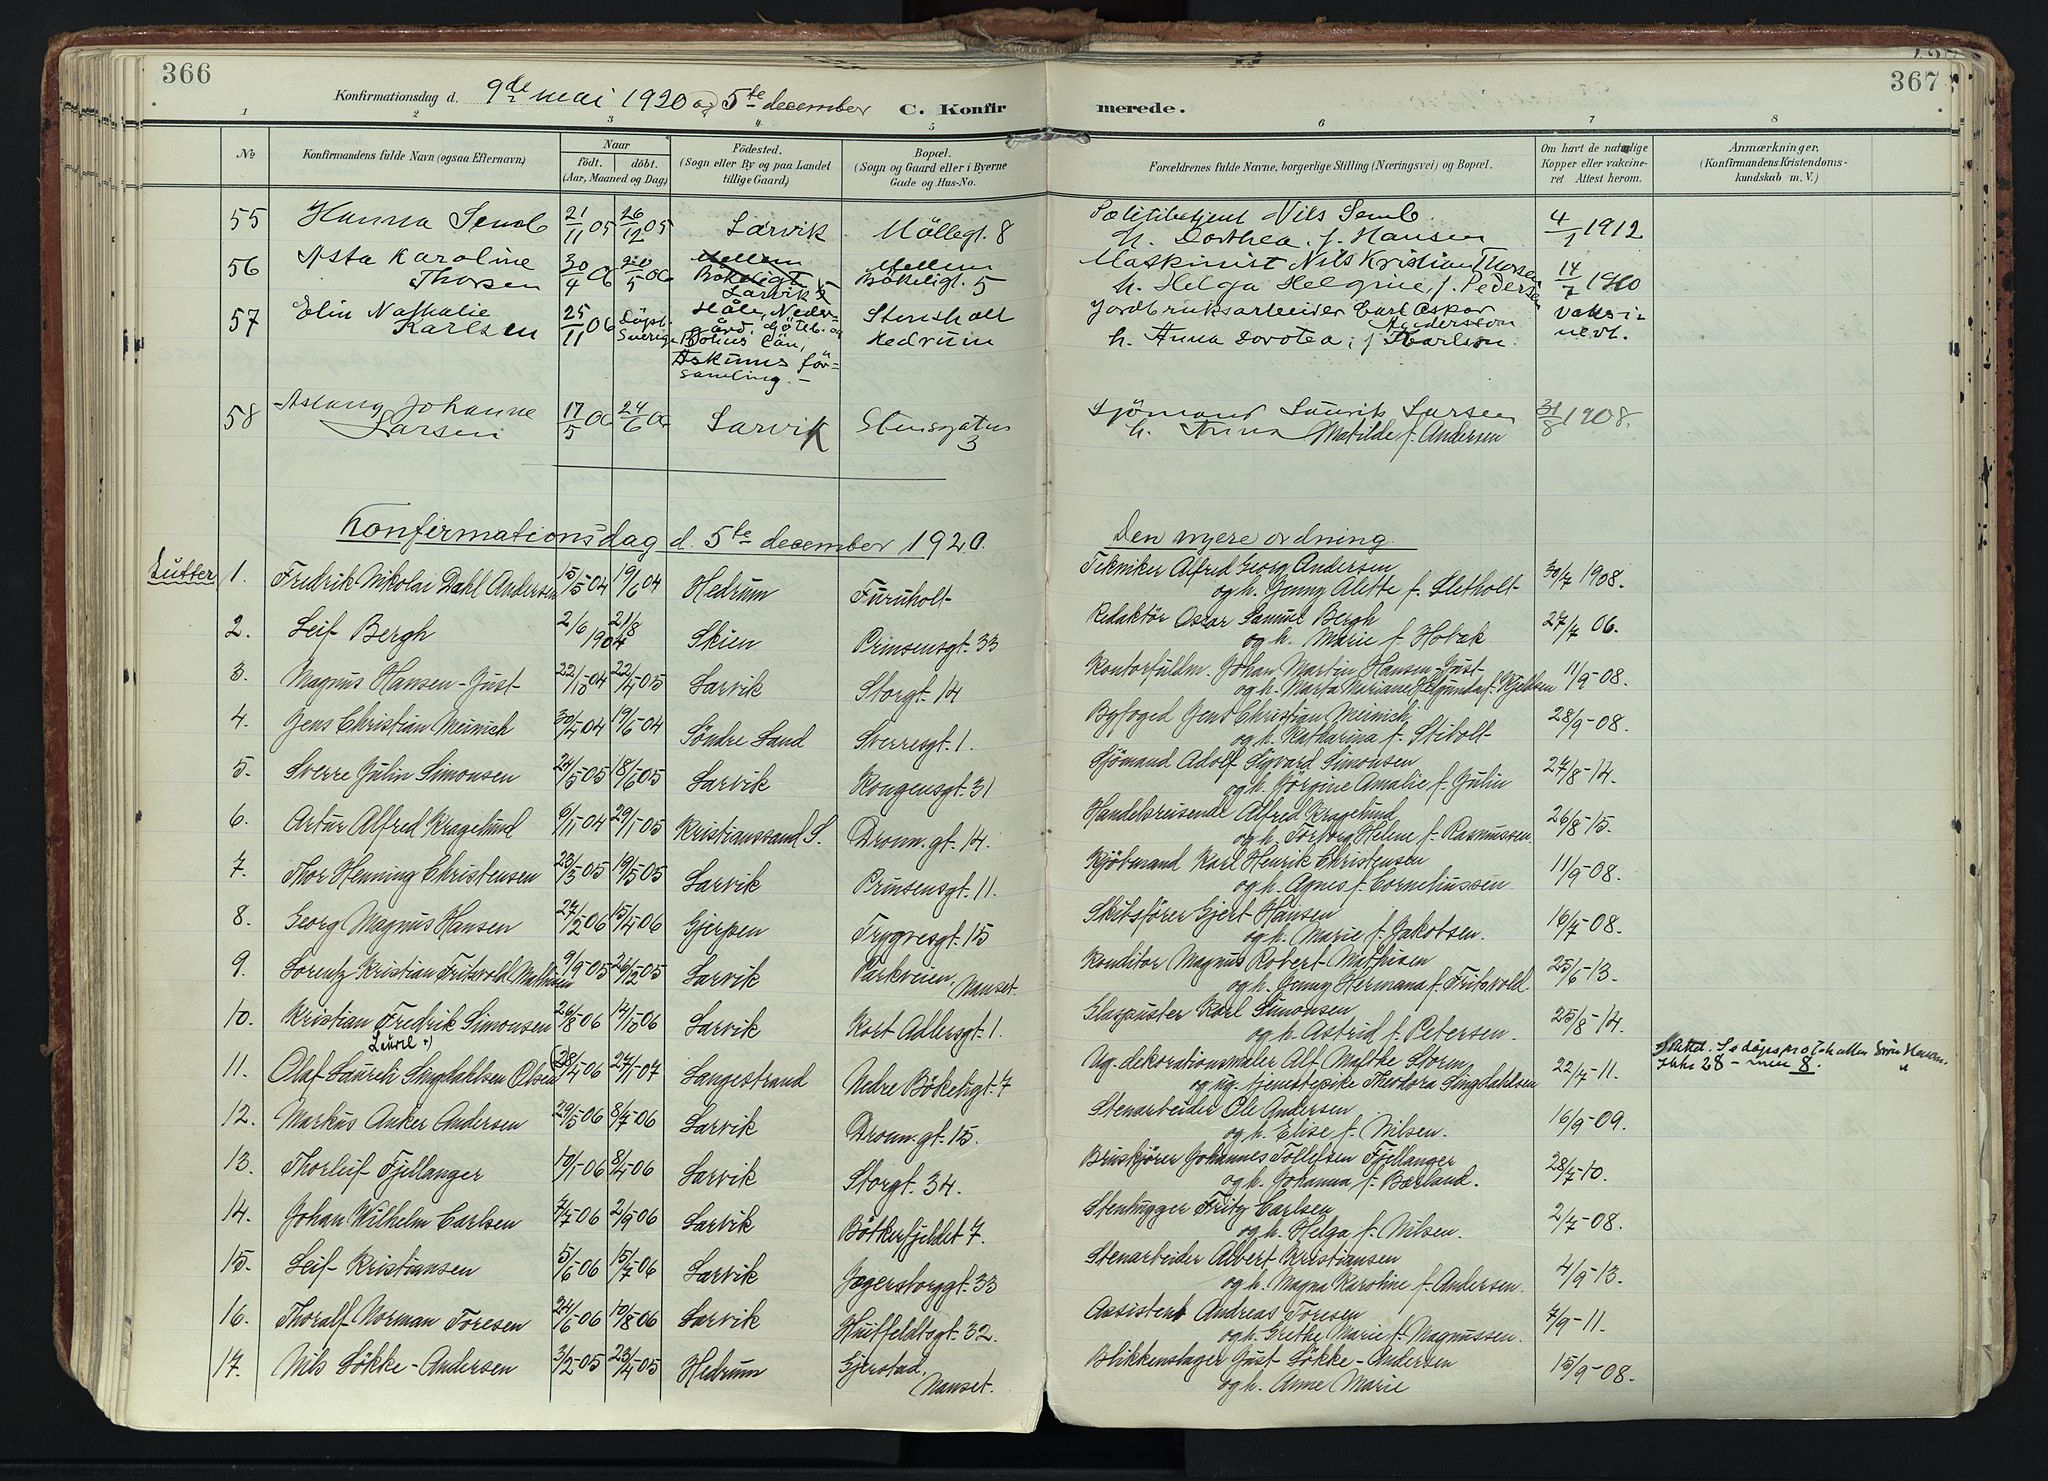 366
367
Konfirmationsdag d. 9de mai 1920 og 5te december C. Konfirmerede.
1 2 3 4 5 6 7 8
No
Konfirmandens fulde Navn (ogsaa Efternavn)
Naar
født. døbt.
(Aar, Maaned og Dag)
Födested.
(Sogn eller By og paa Landet
tillige Gaard)
Bopæl.
(Sogn og Gaard eller i Byerne
Gade og Hus-No.
Forældrenes fulde Navne, borgerlige Stilling (Næringsvei) og Bopæl.
Om havt de naturlige
Kopper eller vakcine-
ret. Attest herom.
Anmærkninger,
(Konfirmandens Kristendoms-
kundskab m. V.)
55 Hanna Semb 21/11 05 26/12 05 Larvik Möllegt. 8 Politibetjent Nils Semb 4/1 1912
h. Dorthea f. Hansen
56 Asta Karoline Thorsen 30/4 06 5 06 Mellem Bökeligt 5 Larvik Mellem Bökeligt. 5 Maskinist Nils Kristian Thorsen 14/7 1910
h. Helga Helgine, f. Pedersen
57 Elin Nathalie Karlsen 25/11 06 Döpt Sverige Stensholt Hedrum Jordbruksarbeider Carl Oskar Andersson vaksinert.
Bohus län, Askums församling.-
h. Anna Dorotea, f. Karlson
58 Aslaug Johanne Larsen 17/5 06 24/6 06 Larvik Stensgatus 3 Sjömand Laurits Larsen 31/8 1908.
h. Anna Matilde f. Andersen
Konfirmationsdag d. 5te december 1920. Den nyere ordning.
Gutter
1. Fredrik Nikolai Dahl Andersen 15/5-04 19/6 04 Hedrum Furuholt Tekniker Alfred Georg Andersen 30/7 1908.
og h. Jenny Alette f. Sletholt
2. Leif Bergh 2/6 21/8 1904 Skien Prinsensgt. 33 Redaktör Oscar Samuel Bergh 27/7 06.
og h. Marie f. Hobæk
3. Magnus Hansen-Just 22/10 04 22/4-05 Larvik Storgt. 14 Kontorfuldm. Johan Martin Hansen-Just 11/9-08.
og h. Marta Mariane Helgunda f. Kjeldsen
4. Jens Christian Meinich 30/4-04 19/6-04 Söndre Land Sverresgt. 1. Byfoged Jens Christian Meinich 28/9-08.
og h. Katharina f. Stibolt
5. Sverre Julin Simonsen 24/5-05 18/6-05 Larvik Kongensgt. 31 Sjömand Adolf Sigvard Simonsen 27/8-14.
og h. Jörgine Amalie f. Julin
6. Artur Alfred Kragelund 6/11-04 29/1-05 Kristianssand S. Dronn. gt. 14. Handelsreisende Alfred Kragelund 26/8-15.
og h. Torborg Helene f. Rasmussen.
7. Thor Henning Christensen 23/3-05 19/5-05 Larvik Prinsensgt. 11. Kjöbmand Karl Henrik Christensen 11/9-08.
og h. Agnes f. Corneliussen.
8. Georg Magnus Hansen 27/2-06 15/4-06 Gjerpen Trygvesgt. 15 Skibsförer Gjert Hansen 16/7-08.
og h. Marie f. Jakobsen.
9. Lorentz Kristian Fritsvold Mathisen 9/9-05 26/12-05 Larvik Parkveien, Nanset. Konditor Magnus Robert Mathisen 25/6-13.
og h. Jenny Hermana f. Fritsvold.
10. Kristian Fredrik Simonsen 26/8-06 14/10-06 Larvik Kort Adlersgt. 1. Glaspuster Karl Simonsen 25/8-14.
og h. Astrid f. Petersen.
11. Olaf Laurel Lauritz Singdahlsen Olsen 28/4-06 27/11-07 Langestrand Nedre Bökeligt. 7 Ug. dekorationsmaler Alf Malthe Storm 22/7-11.
og ug. tjenestepike Theodora Singdahlsen
ikke 28 - men 8.
12. Markus Anker Andersen 29/5-06 8/7-06 Larvik Dronn. gt. 15. Stenarbeider Ole Andersen 16/9-09.
og h. Elise f. Nilsen.
13. Thorleif Fjellanger 10/1-06 8/4-06 Larvik Storgt. 34. Bruskjörer Johannes Tollefsen Fjellanger 28/7-10.
og h. Johanna f. Bærland.
14. Johan Wilhelm Carlsen 7/7-06 2/9-06 Larvik Bötkerfjeldet 7. Stenhugger Fritz Carlsen 2/7-08.
og h. Helga f. Nilsen.
15. Leif Kristiansen 5/6-06 15/7-06 Larvik Jegersborggt. 33 Stenarbeider Albert Kristiansen 4/9-13.
og h. Magna Karoline f. Andersen.
16. Thoralf Norman Foresen 24/6-06 19/8-06 Larvik Huitfeldtsgt. 32. Assistent Andreas Foresen 7/9-11.
og h. Grethe Marie f. Magnussen.
17. Nils Lökke-Andersen 3/2-05 23/4-05 Hedrum Gjerstad, Nanset. Blikkenslager Just Lökke-Andersen 15/9-08.
og h. Anne Marie